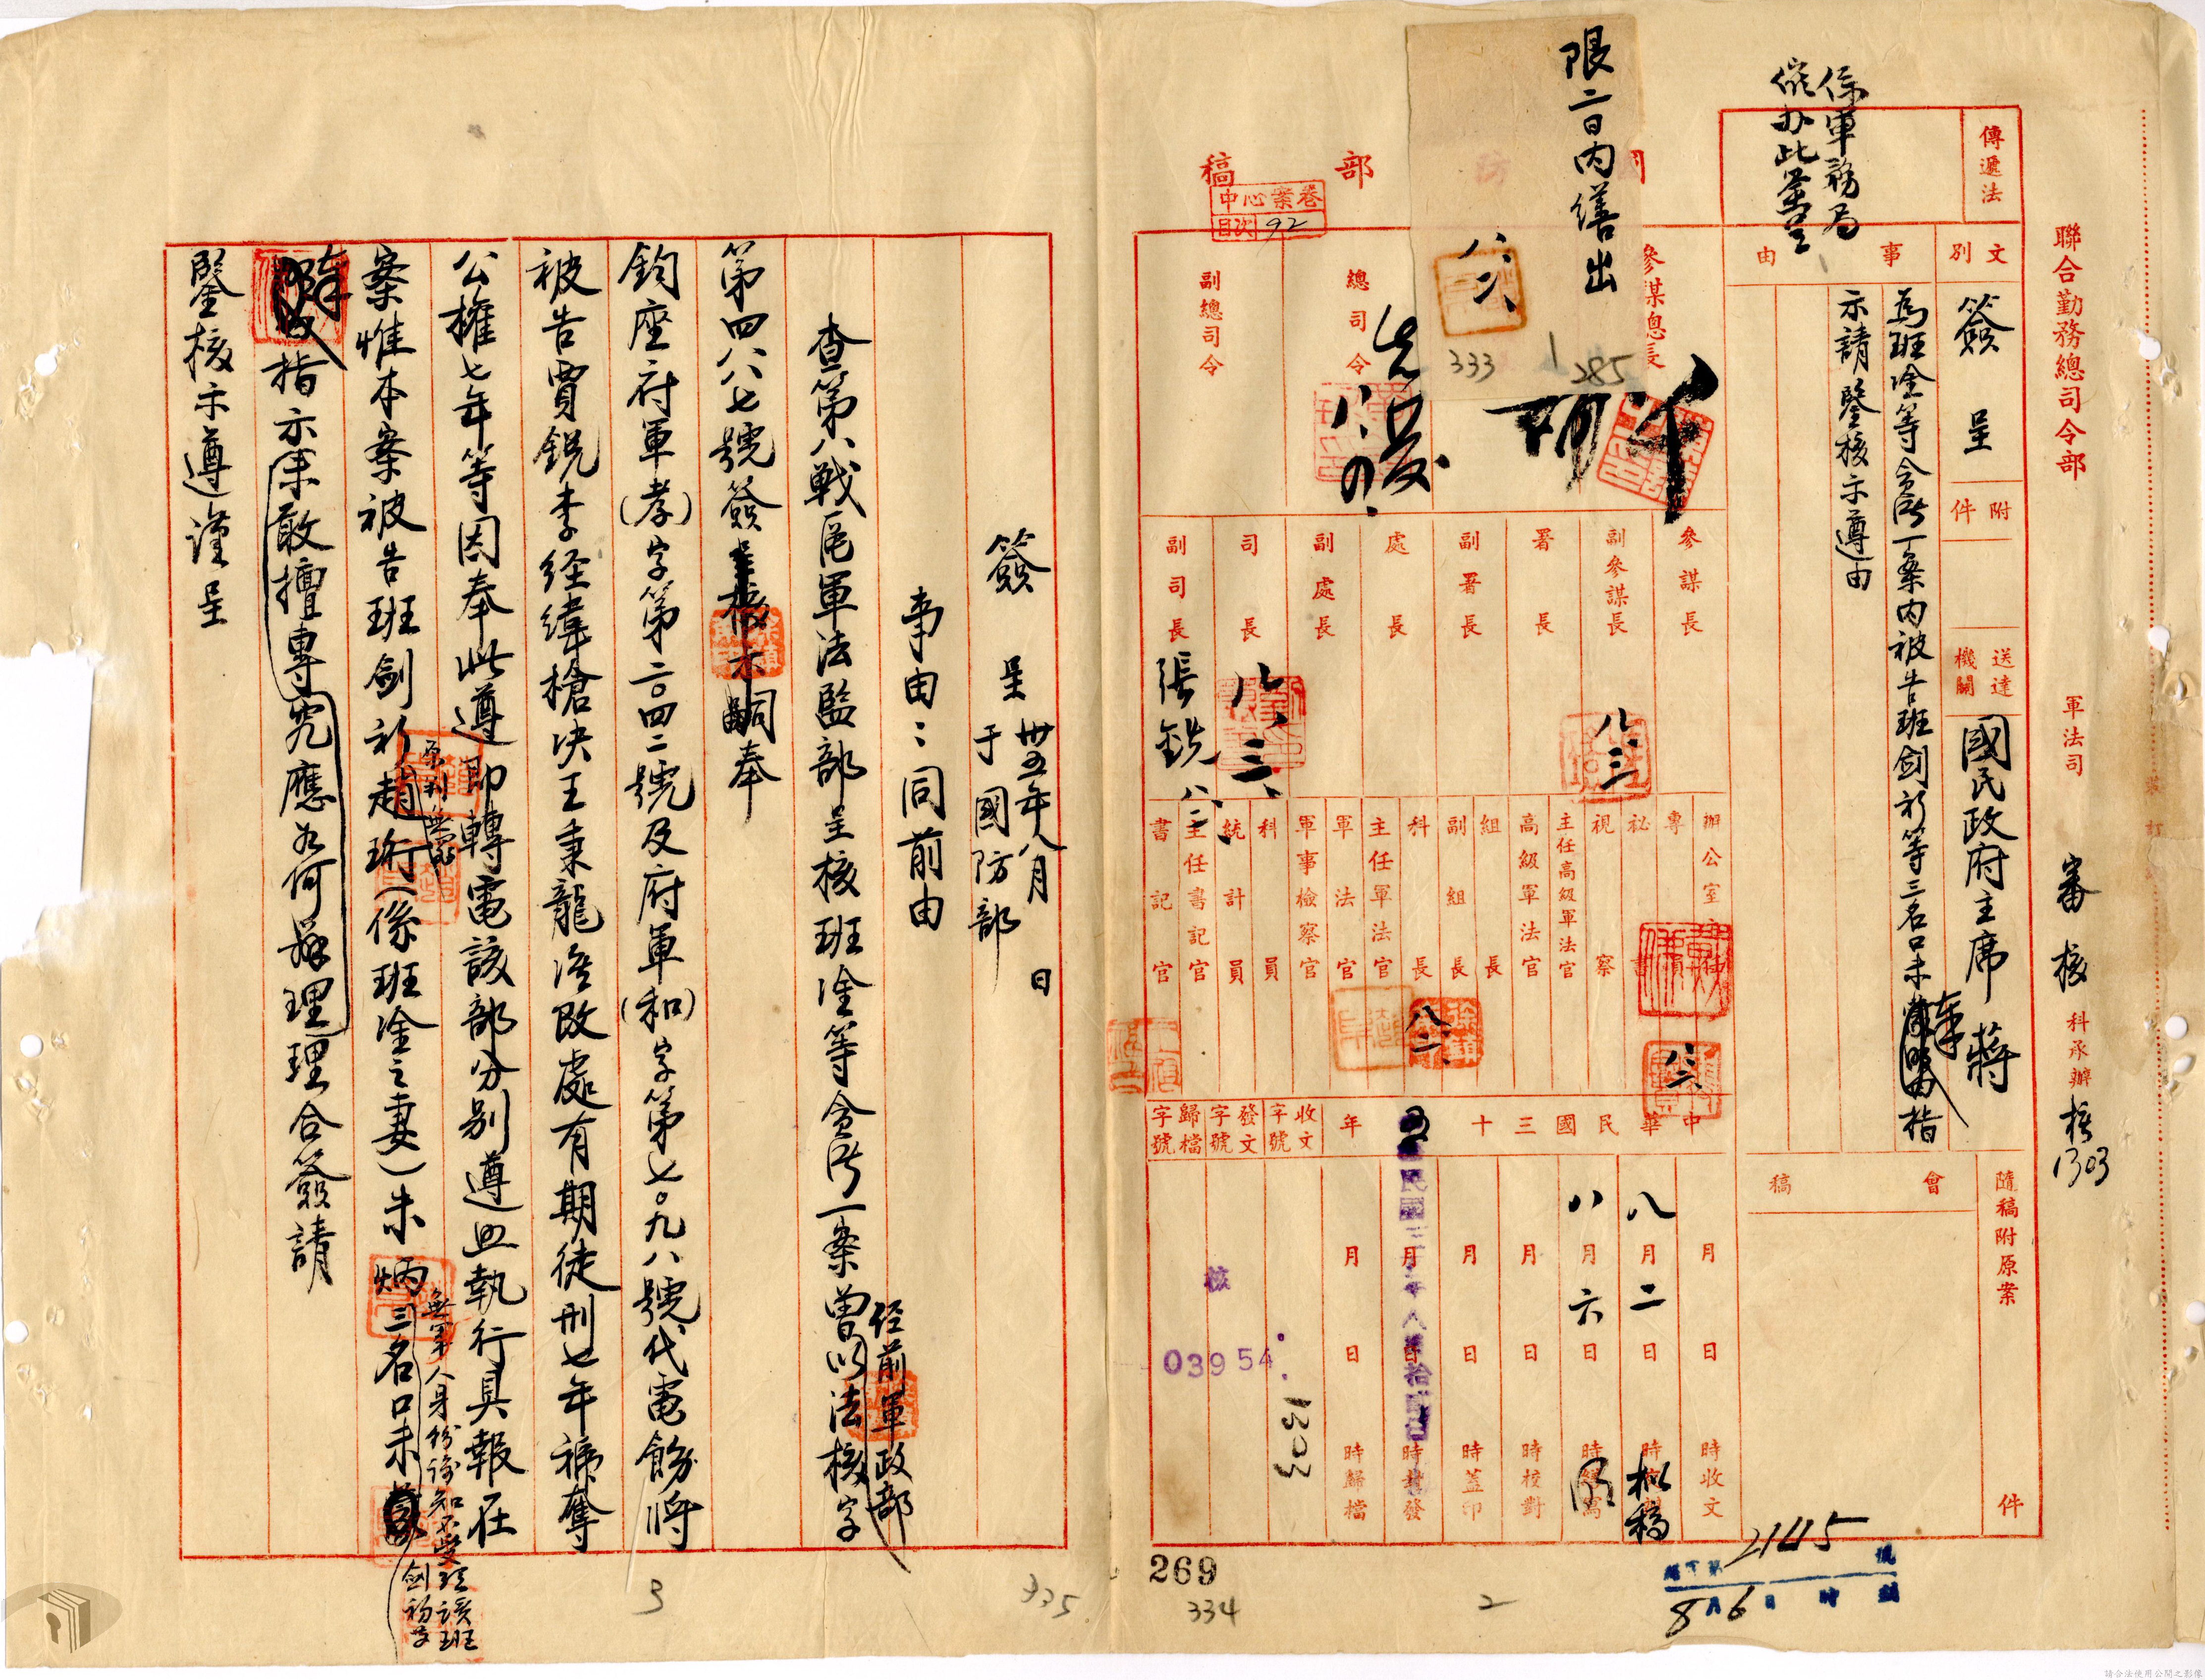 聯合勤務總司令部
軍法司
審核
科承辦
核
1303
傳遞法
係軍務局
催办此案呈
限二日內繕出
八、二、
333
285
部
稿
中心案卷
目次
92
文別
簽呈
附件
送達機關
國民政府主席蔣
事由
為班淦等貪污一案內被告班劍衫等三名口未奉指
示請鑒核示遵由
隨稿附原案
件
會
稿
參謀總長
總司令
副總司令
參謀長
副參謀長
署長
副署長
處長
副處長
司長
副司長
八、三
八、三、
張銳
八、二、
辦公室主
專
秘書
視察
主任高級軍法官
高級軍法官
組長
副組長
科長
主任軍法官
軍法官
軍事檢察官
科員
統計員
主任書記官
書記官
八、二、
中華民國三十
年
月日時收文
八月二日時擬稿
八月六日時繕寫
月日時校對
月日時蓋印
月日時封發
月日時歸檔
收文字號
發文字號
歸檔字號
核
03954
1303
269
334
2
21115
號
8月6日時
簽呈
卅五年八月 日
于國防部
事由:同前由
查第八戰區軍法監部呈核班淦等貪污一案曾經前軍政部以法核字
第四八七號簽呈核示嗣奉
鈞座府軍(孝)字第二〇四二號及府軍(和)字第七〇九八號代電飭將
被告賈銳李经緯槍決王秉龍准改處有期徒刑七年褫奪
公權七年等因奉此遵即轉電該部分別遵照執行具報在
案惟本案被告班劍衫趙珩(係班淦之妻)朱炳三名口未
原判無罪
無軍人身份諭知不受理該班
劍衫等
奉指示未敢擅專究應如何辦理理合簽請
鑒核示遵謹呈
335
3
請合法使用公開之影像